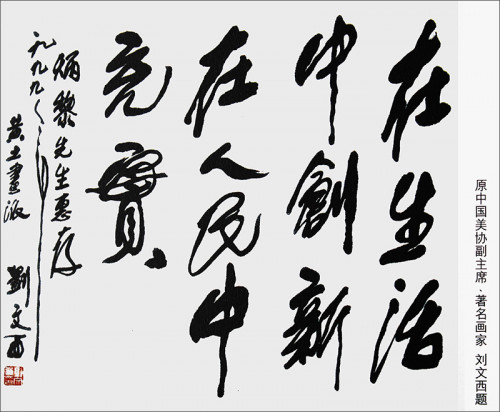 在生活
中創新
在人民中
充實
炳黎先生惠存
一九九八年
黄土畫派 劉文西
原中国美协副主席、著名画家 刘文西题